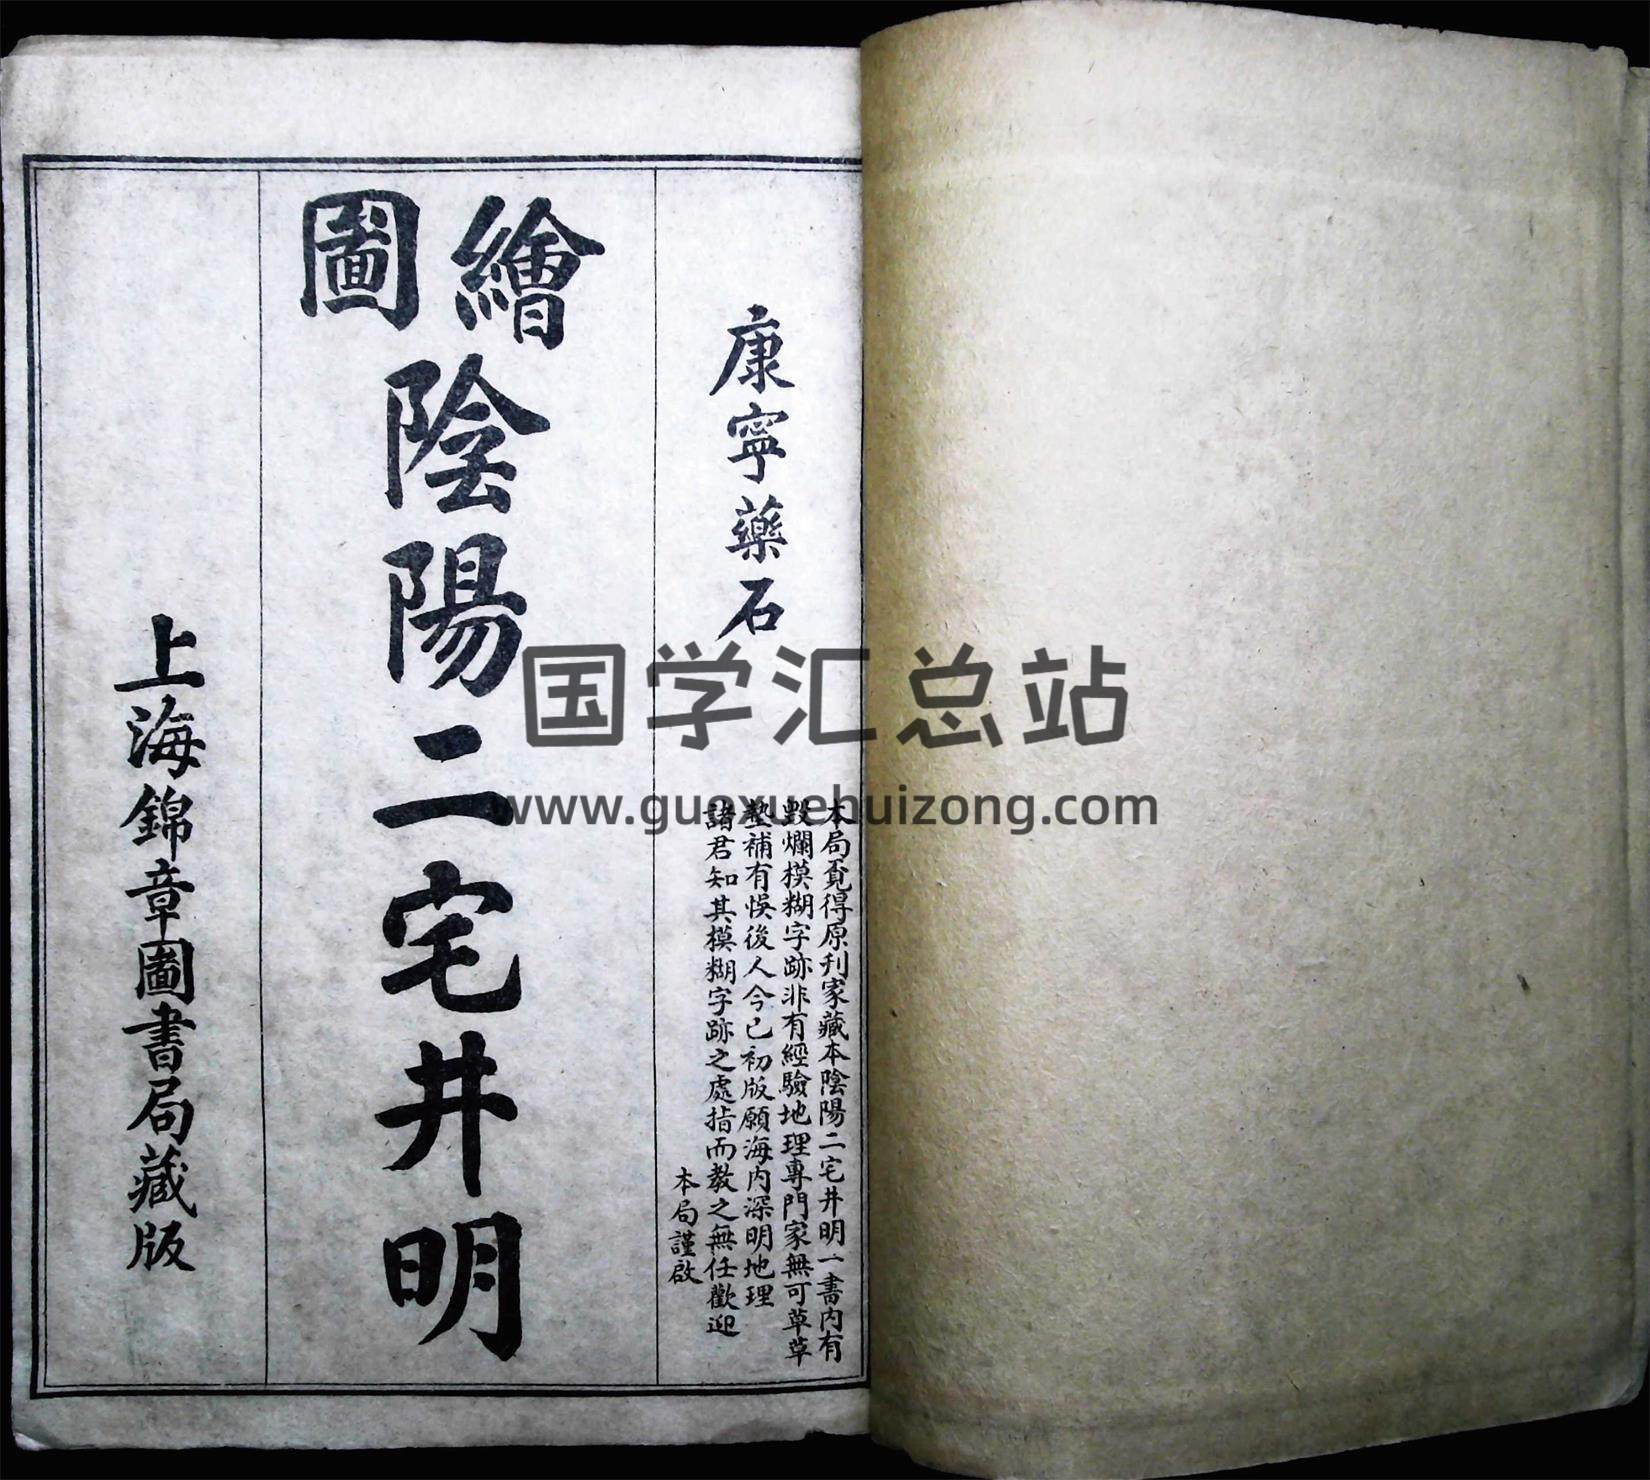 康寧藥石
本局覓得原刊家藏本陰陽二宅井明一書内有
毀爛模糊字跡非有經驗地理專門家無可草草
墊補有悮後人今已初版願海内深明地理
諸君知其模糊字跡之處指而教之無任歡迎
本局謹啟
繪圖
陰陽二宅井明
上海錦章圖書局藏版
国学汇总站
www.guoxuehuizong.com